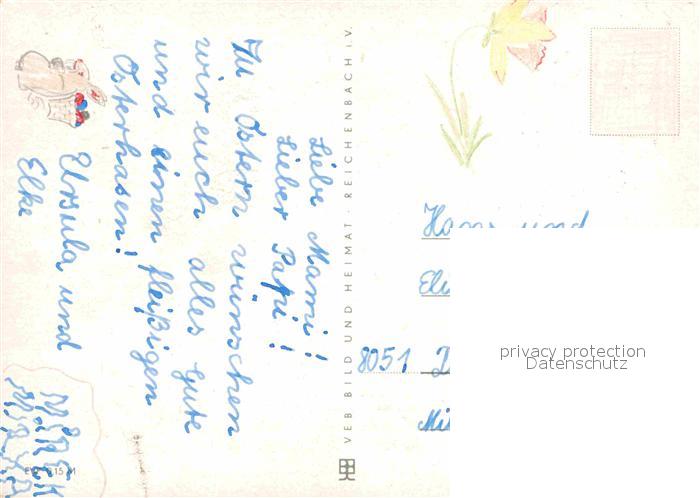 Liebe Mami!
Lieber Papi!
Zu Ostern wünschen
wir euch alles Gute
und einen fleißigen
Osterhasen!
Ursula und
Elke
VEB BILD UND HEIMAT · REICHENBACH i.V.
Hans und
8051
privacy protection
Datenschutz